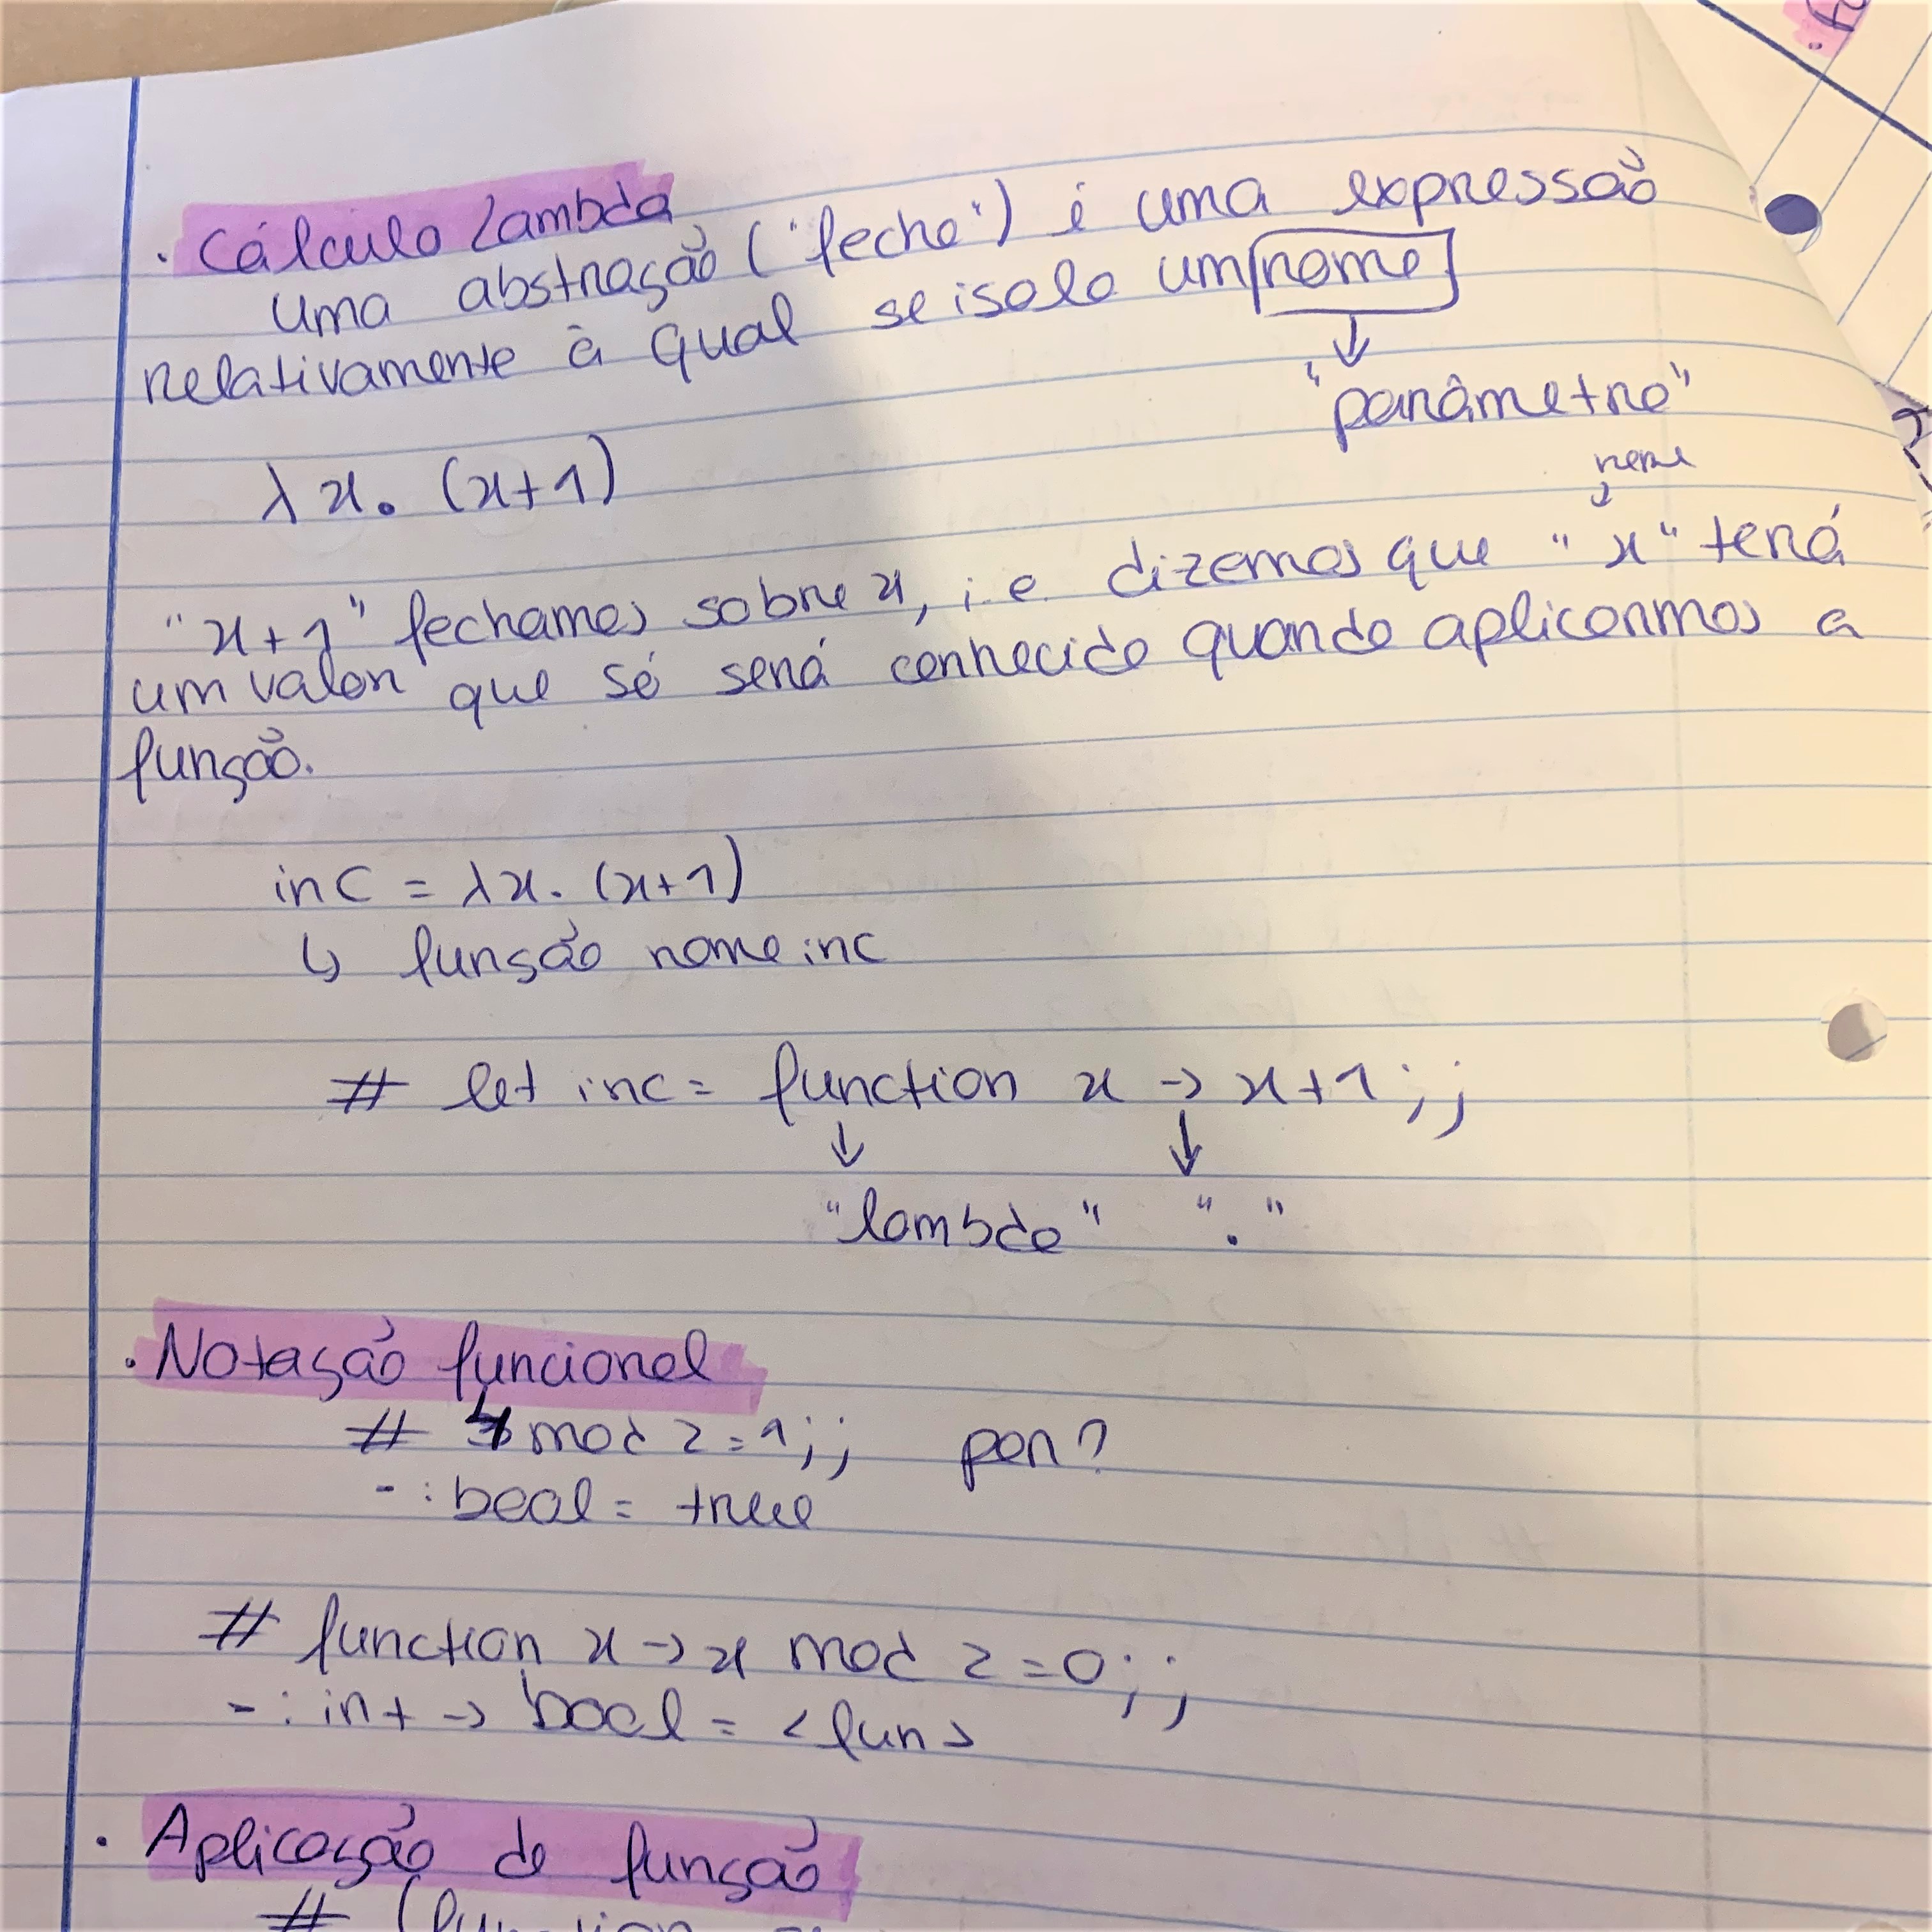 . Cálculo Lambda
Uma abstração ("fecho") é uma expressão
relativamente à qual se isola um nome
↓
"parâmetro"
λx. (x+1)
nome
"x+1" fechamos sobre x, i.e. dizemos que "x" terá
um valor que só será conhecido quando aplicarmos a
função.
inc = λx. (x+1)
↳ função nome inc
# let inc = function x -> x+1;;
↓ ↓
"lambda" "."
. Notação funcional
# mod 2 = 1;; par?
- : bool = true
# function x -> x mod 2 = 0;;
- : int -> bool = <fun>
. Aplicação de função
# (function